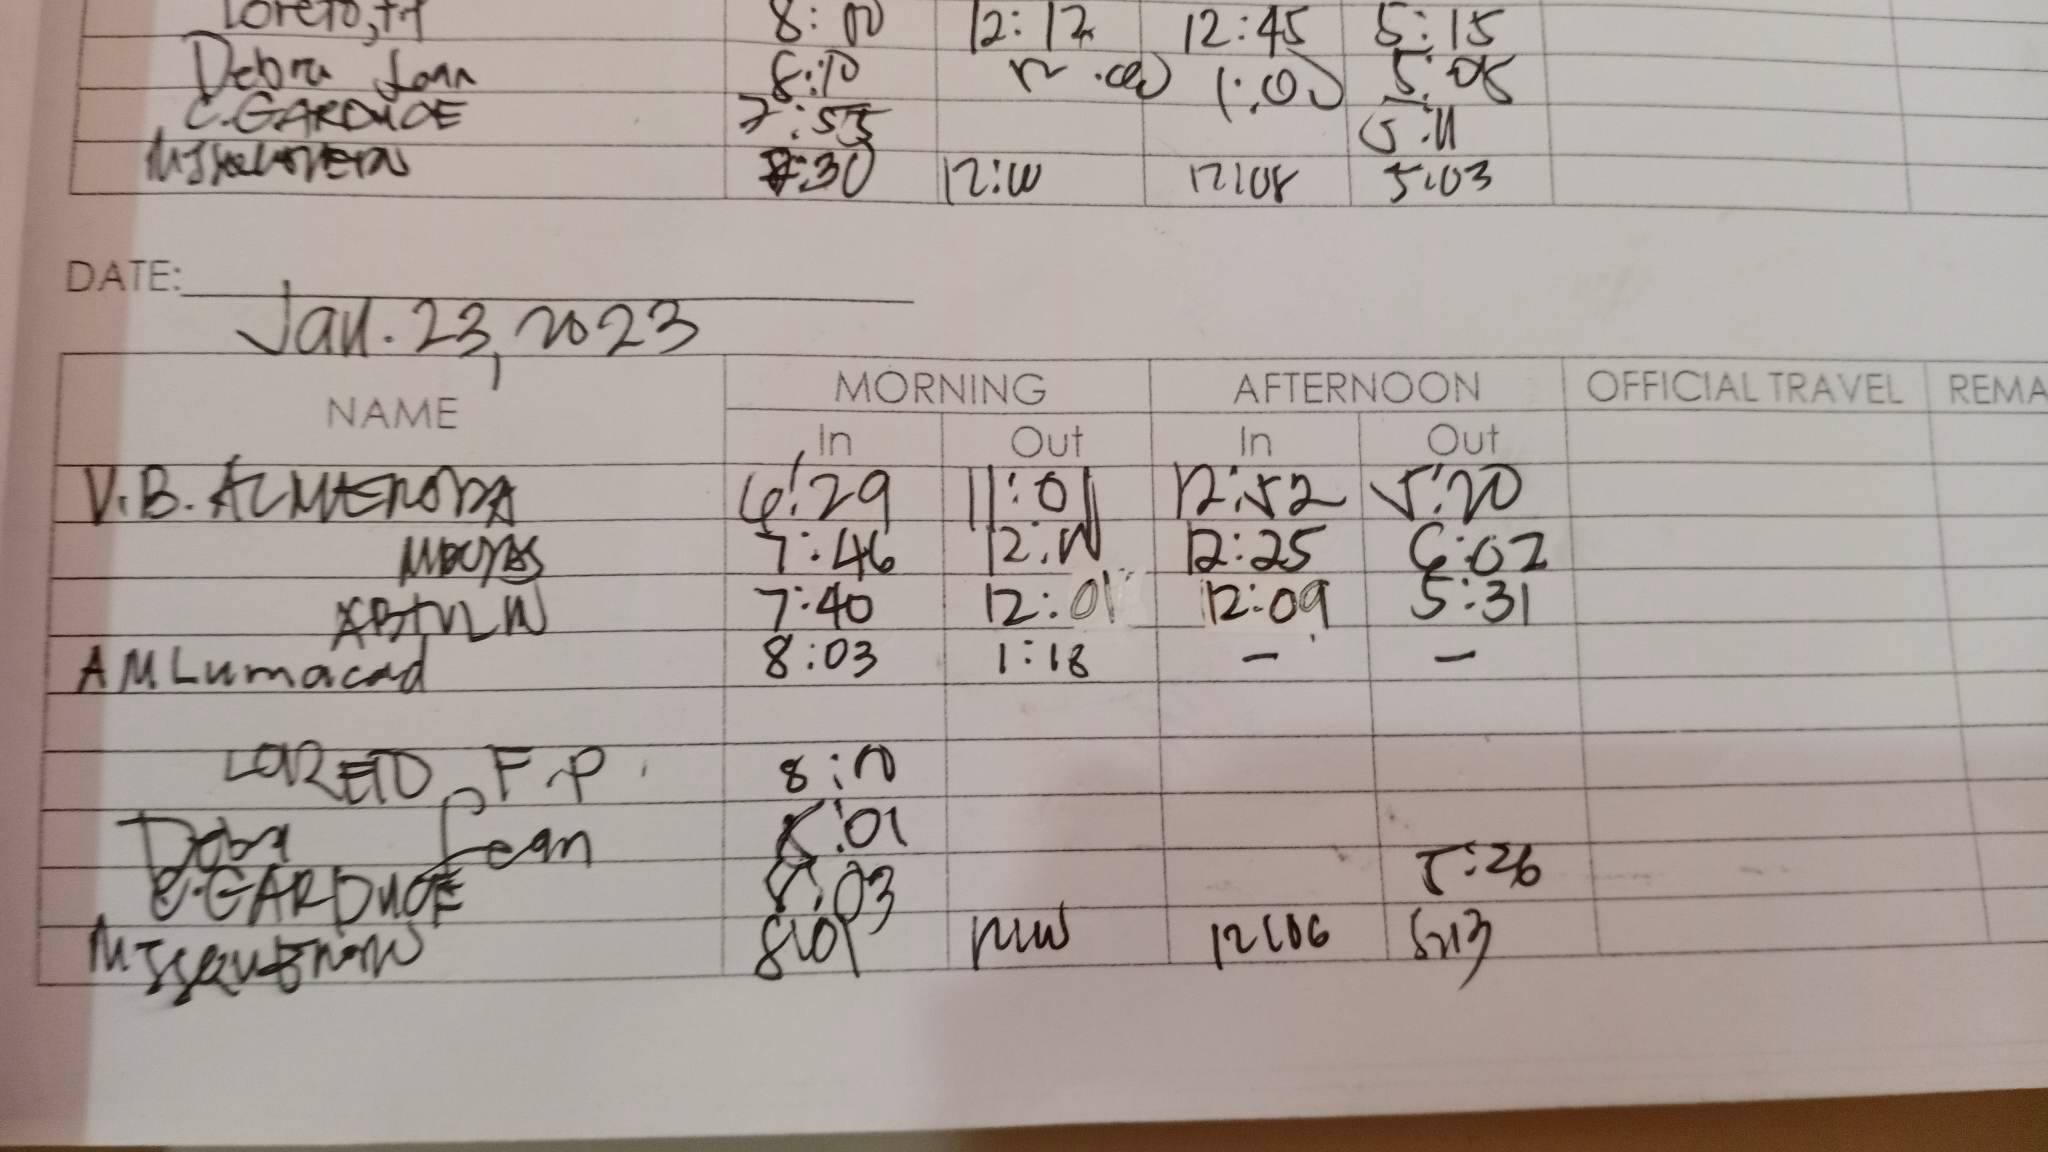 Loreto, 8:00 12:12 12:45 5:15
Debra 8:10 1:00 5:05
C. GARDUCE 7:55 5:11
8:30 12:00 12:08 5:03
DATE:
Jan. 23, 2023
NAME MORNING AFTERNOON OFFICIAL TRAVEL REMA
In Out In Out
V.B. ALMENODA 6:29 11:01 12:52 5:20
7:46 12:00 12:25 6:02
7:40 12:01 12:09 5:31
AMLumacad 8:03 1:18 - -
LORETO, F.P. 8:00
Debra Lean 8:01
C. GARDUCE 8:03 5:26
8:01 12:00 12:06 5:13